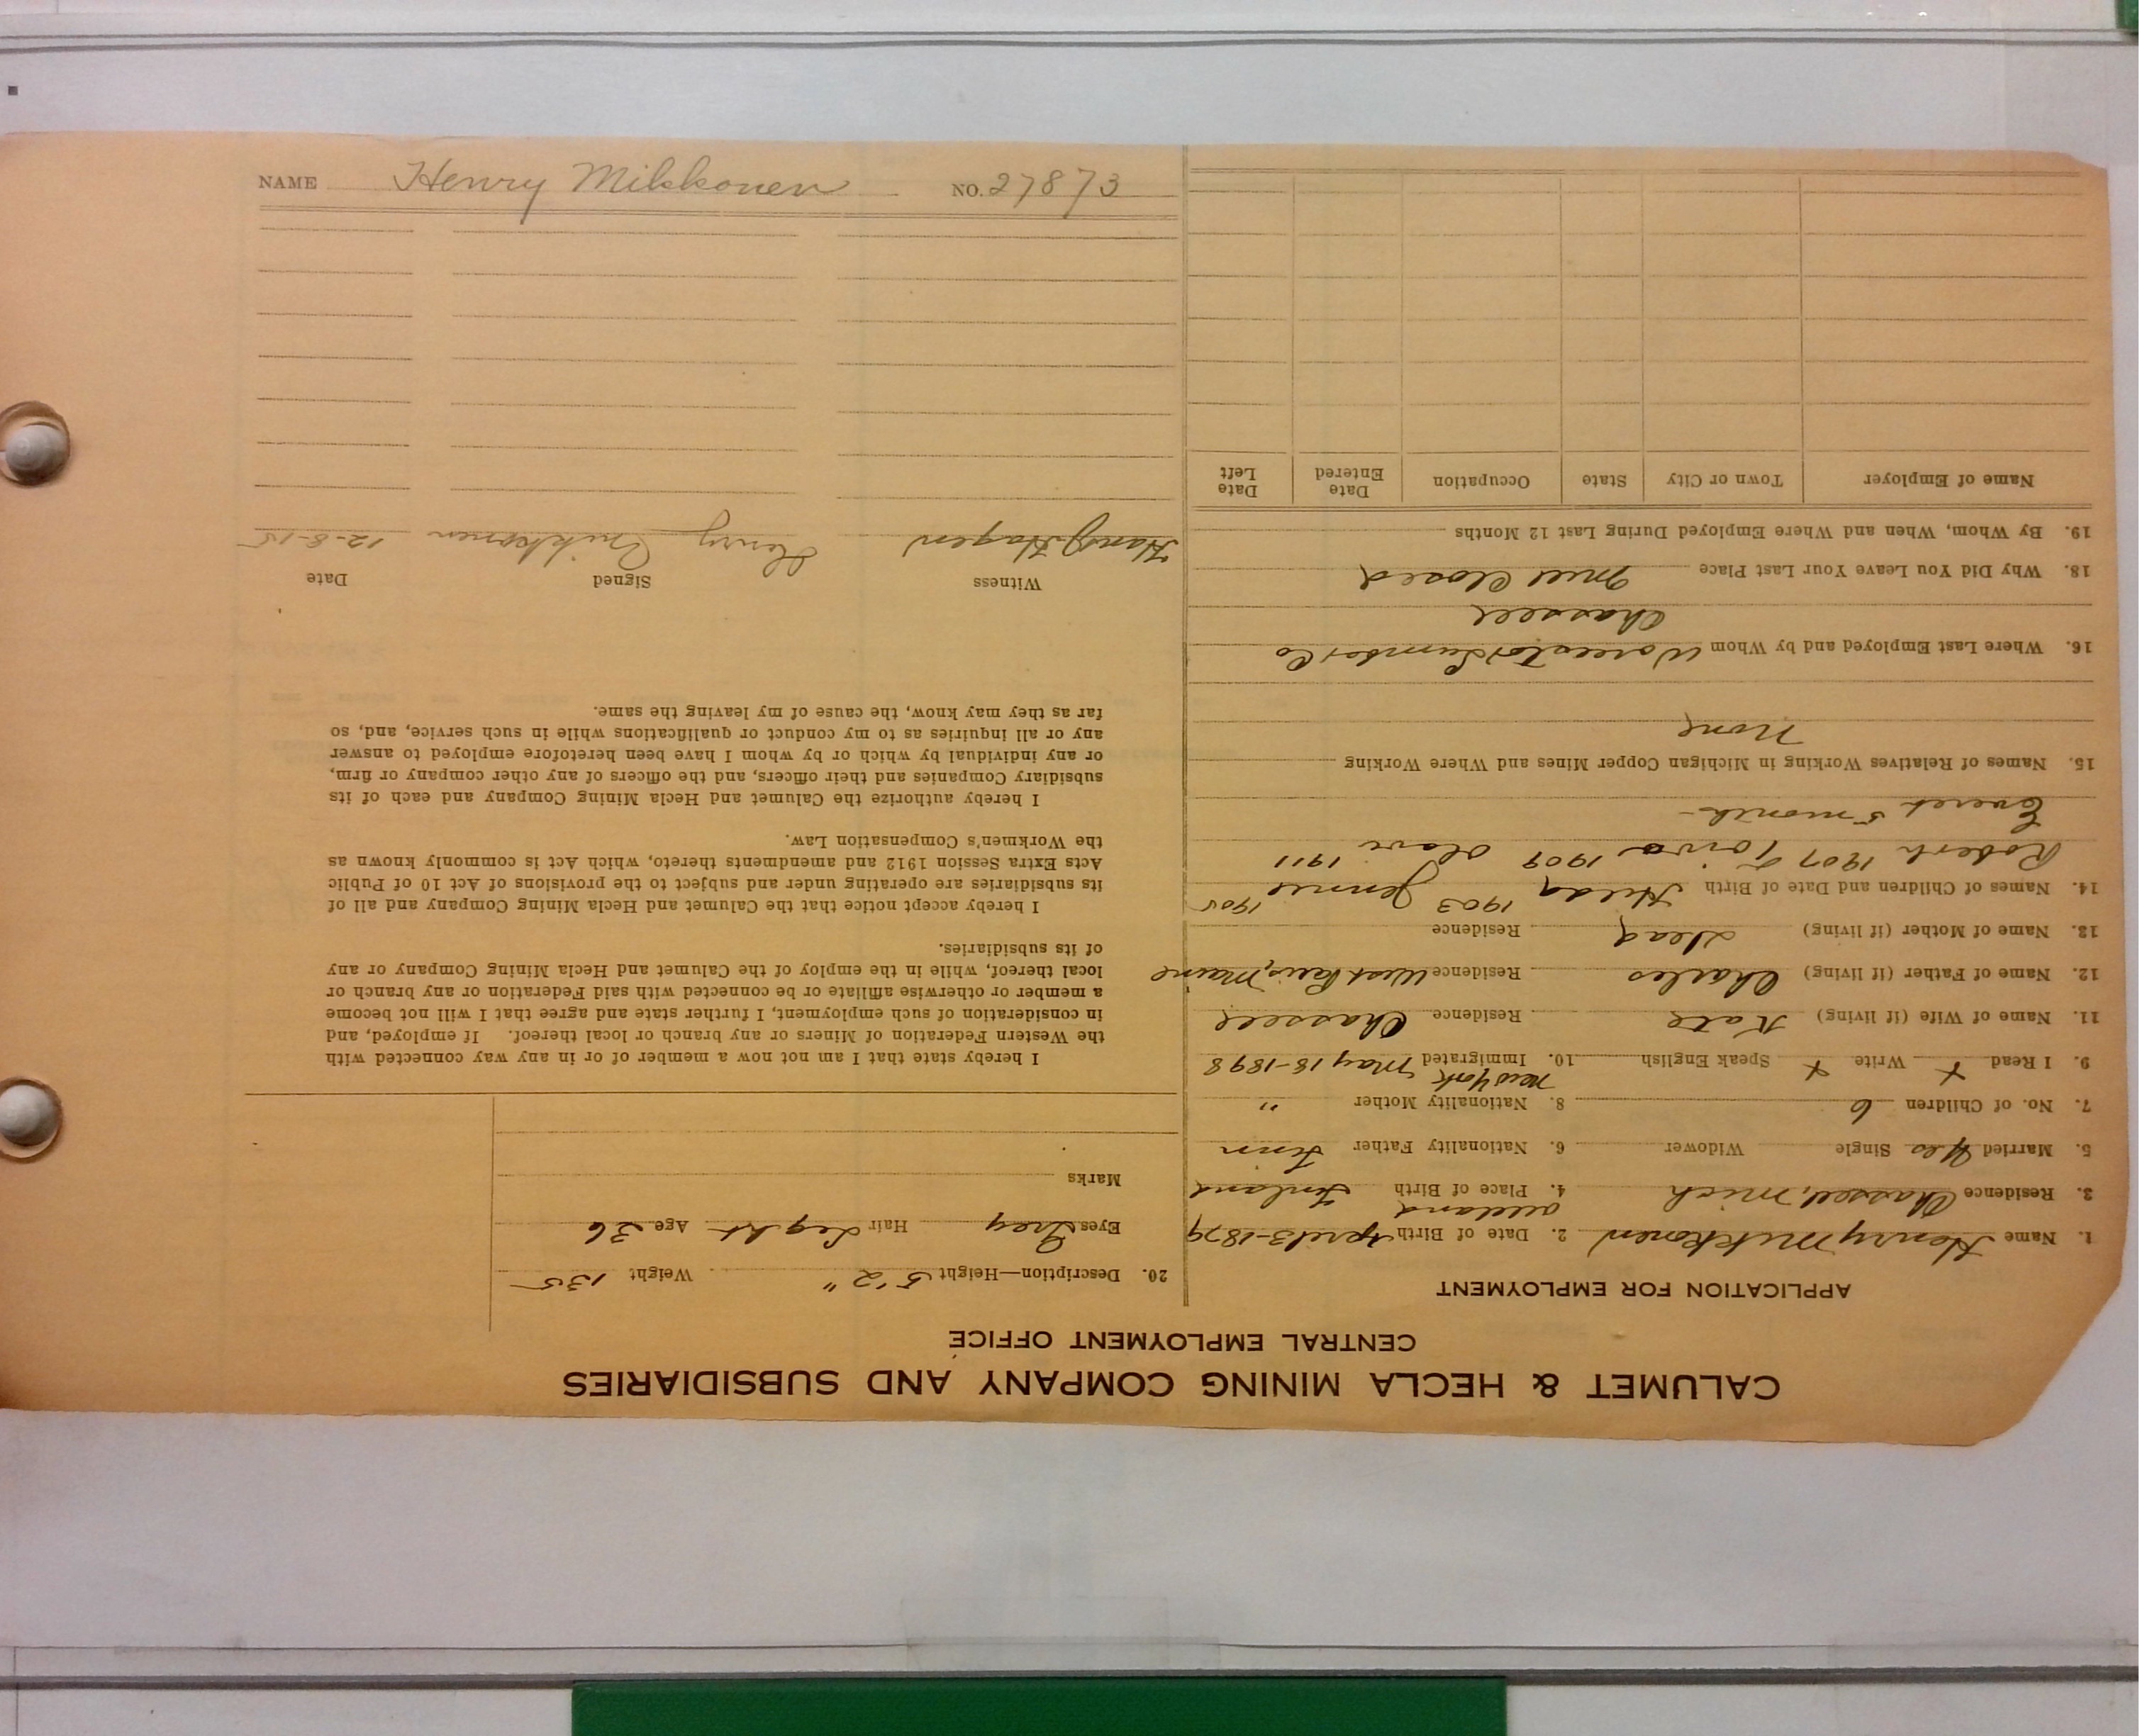 CALUMET & HECLA MINING COMPANY AND SUBSIDIARIES
CENTRAL EMPLOYMENT OFFICE
APPLICATION FOR EMPLOYMENT
1. Name Henry Mikkonen 2. Date of Birth April 3-1879
3. Residence Chassell, Mich 4. Place of Birth Finland
5. Married Yes Single Widower 6. Nationality Father Finn
7. No. of Children 6 8. Nationality Mother "
New York
9. I Read x Write x Speak English 10. Immigrated May 18-1898
11. Name of Wife (if living) Kate Residence Chassell
12. Name of Father (if living) Charles Residence West Paris, Maine
13. Name of Mother (if living) Dead Residence
14. Names of Children and Date of Birth Hilda 1903 Jennie 1905
Robert 1907 Toivo 1909 Olavi 1911
Everet 5 month -
15. Names of Relatives Working in Michigan Copper Mines and Where Working
None
16. Where Last Employed and by Whom Worcester Lumber Co
Chassell
18. Why Did You Leave Your Last Place Mill Closed
19. By Whom, When and Where Employed During Last 12 Months
Name of Employer Town or City State Occupation Date Entered Date Left
20. Description—Height 5' 2" Weight 135
Eyes Grey Hair Light Age 36
Marks
I hereby state that I am not now a member of or in any way connected with
the Western Federation of Miners or any branch or local thereof. If employed, and
in consideration of such employment, I further state and agree that I will not become
a member or otherwise affiliate or be connected with said Federation or any branch or
local thereof, while in the employ of the Calumet and Hecla Mining Company or any
of its subsidiaries.
I hereby accept notice that the Calumet and Hecla Mining Company and all of
its subsidiaries are operating under and subject to the provisions of Act 10 of Public
Acts Extra Session 1912 and amendments thereto, which Act is commonly known as
the Workmen's Compensation Law.
I hereby authorize the Calumet and Hecla Mining Company and each of its
subsidiary Companies and their officers, and the officers of any other company or firm,
or any individual by which or by whom I have been heretofore employed to answer
any or all inquiries as to my conduct or qualifications while in such service, and, so
far as they may know, the cause of my leaving the same.
Witness Signed Date
Hans J. Hagen Henry Mikkonen 12-8-15
NAME Henry Mikkonen NO. 27873